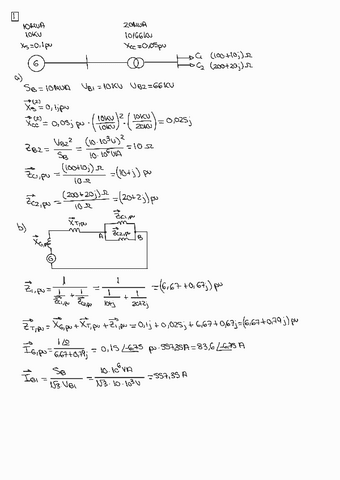 1
10MVA 20MVA
10KV 10/66KV
Xs=0,1pu Xcc=0,05pu
C1 (100+10j) Ω
G
C2 (200+20j) Ω
a)
SB = 10MVA VB1 = 10KV VB2 = 66KV
Xs(2) = 0,1j pu
Xcc(2) = 0,05j pu · (10KV/10KV)² · (10KV/20KV) = 0,025j
ZB2 = VB2²/SB = (10·10³V)²/(10·10⁶VA) = 10 Ω
ZC1,pu = (100+10j) Ω/10 Ω = (10+j) pu
ZC2,pu = (200+20j) Ω/10 Ω = (20+2j) pu
b)
XT,pu ZC1,pu
A ZC2,pu B
XG,pu
G
Z1,pu = 1/(1/ZC1,pu + 1/ZC2,pu) = 1/(1/(10+j) + 1/(20+2j)) = (6,67+0,67j) pu
ZT,pu = XG,pu + XT,pu + Z1,pu = 0,1j + 0,025j + 6,67+0,67j = (6,67+0,79j) pu
IG,pu = 1∠0/(6,67+0,79j) = 0,15∠-6,75 pu · 557,35A = 83,6∠-6,75 A
IB1 = SB/(√3·VB1) = 10·10⁶VA/(√3·10·10³V) = 557,35 A